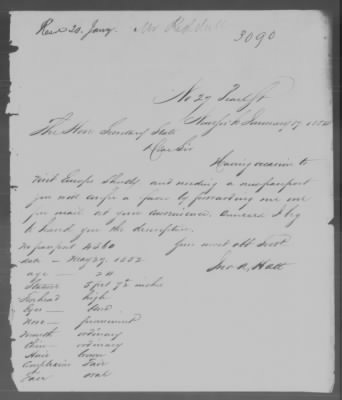 Recd 20. Jany. Mr
3090
No 27 Pearl St
New York January 17, 185
The Hon. Secretary of State
Dear Sir
Having occasion to
visit Europe Shortly and needing a new passport
you will confer a favor by forwarding me one
per mail at your convenience. Annexed I beg
to hand you the description.
No passport 4360
Your most obt Servt
date – May 29. 1852
Jno. R. Hall
age —
Stature 5 feet 7½ inches
Forehead high
Eyes –
Nose — prominent
Mouth ordinary
Chin – ordinary
Hair brown
Complexion Fair
Face oval